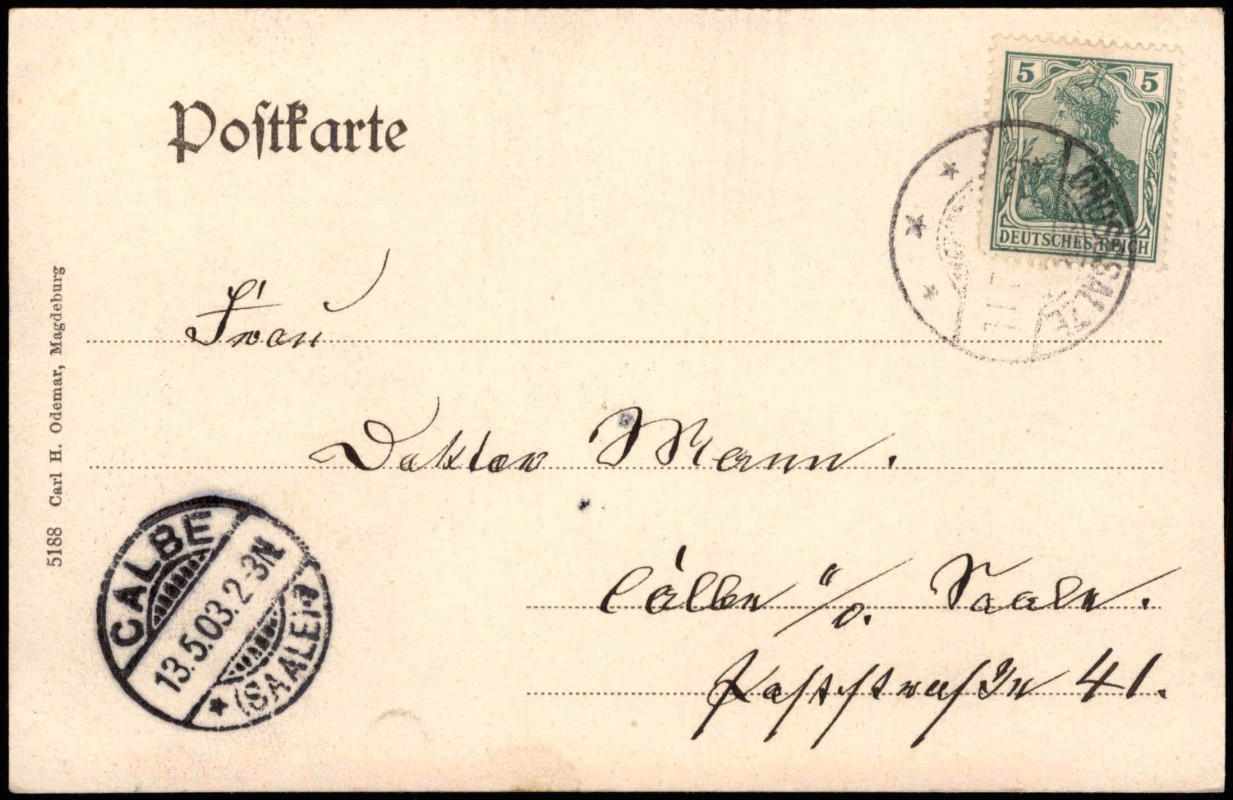 Postkarte
5 5
DEUTSCHES REICH
GROSS-SALZE
Frau
Doktor Mann.
Calbe a/S. Saale.
Poststraße 41.
5188 Carl H. Odemar, Magdeburg
CALBE
13.5.03.2-3N
(SAALE)